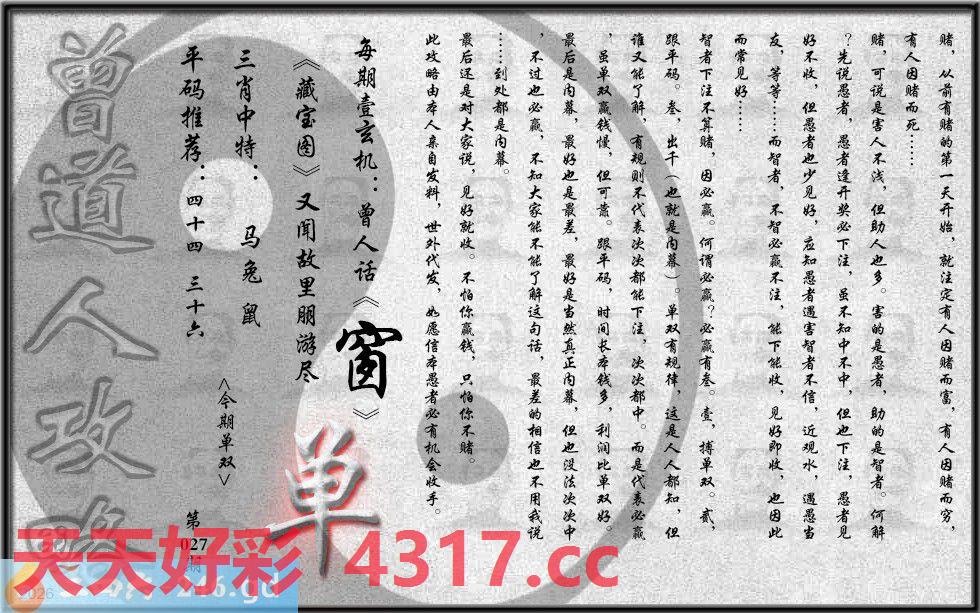 赌，从前有赌的第一天开始，就注定有人因赌而富，有人因赌而穷，
有人因赌而死……
赌，可说是害人不浅，但助人也多。害的是愚者，助的是智者。何解
？先说愚者，愚者逢开奖必下注，虽不知中不中，但也下注，愚者见
好不收，但愚者也少见好，应知愚者遇害智者不信，近观水，遇愚当
友，等等……而智者，不智必赢不注，能下能收，见好即收，也因此
而常见好……
智者下注不算赌，因必赢。何谓必赢？必赢有叁。壹，搏单双。贰，
跟平码。叁，出千（也就是内幕）。单双有规律，这是人人都知，但
谁又能了解，有规则不代表次次都能下注，次次都中。而是代表必赢
，虽单双赢钱慢，但可靠。跟平码，时间长本钱多，利润比单双好。
最后是内幕，最好也是最差，最好是当然真正内幕，但也没法次次中
，不过也必赢，不知大家能不能了解这句话，最差的相信也不用我说
……到处都是内幕。
最后还是对大家说，见好就收。不怕你赢钱，只怕你不赌。
此攻略由本人亲自发料，世外代发，如愿信本愚者必有机会收手。
每期壹玄机：曾人话《窗》
《藏宝图》又闻故里朋游尽
三肖中特：马兔鼠
平码推荐：四十四 三十六
<今期单双>
单
第
027
期
曾道人攻略
天天好彩 4317.cc
2026